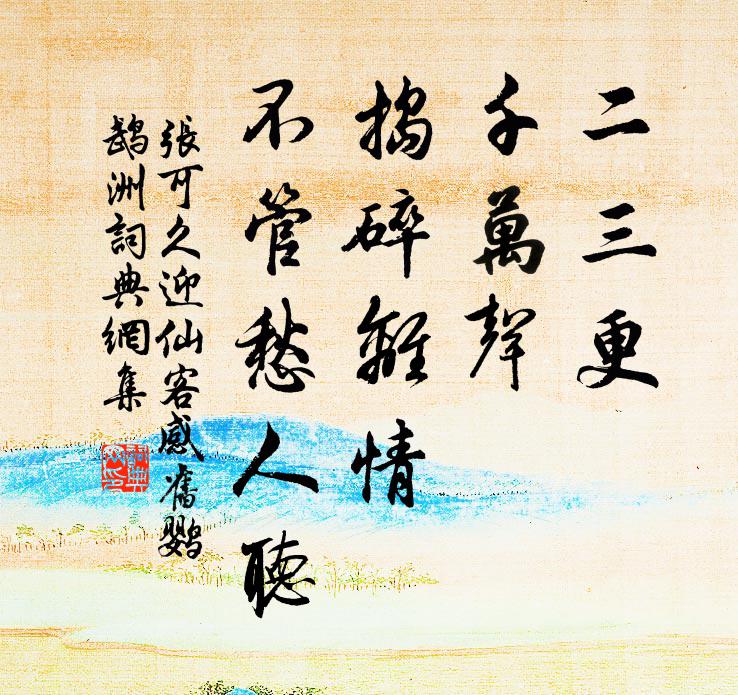 二三更
千萬聲
搗碎離情
不管愁人聽
張可久迎仙客感舊鸚
鵡洲詞典網集